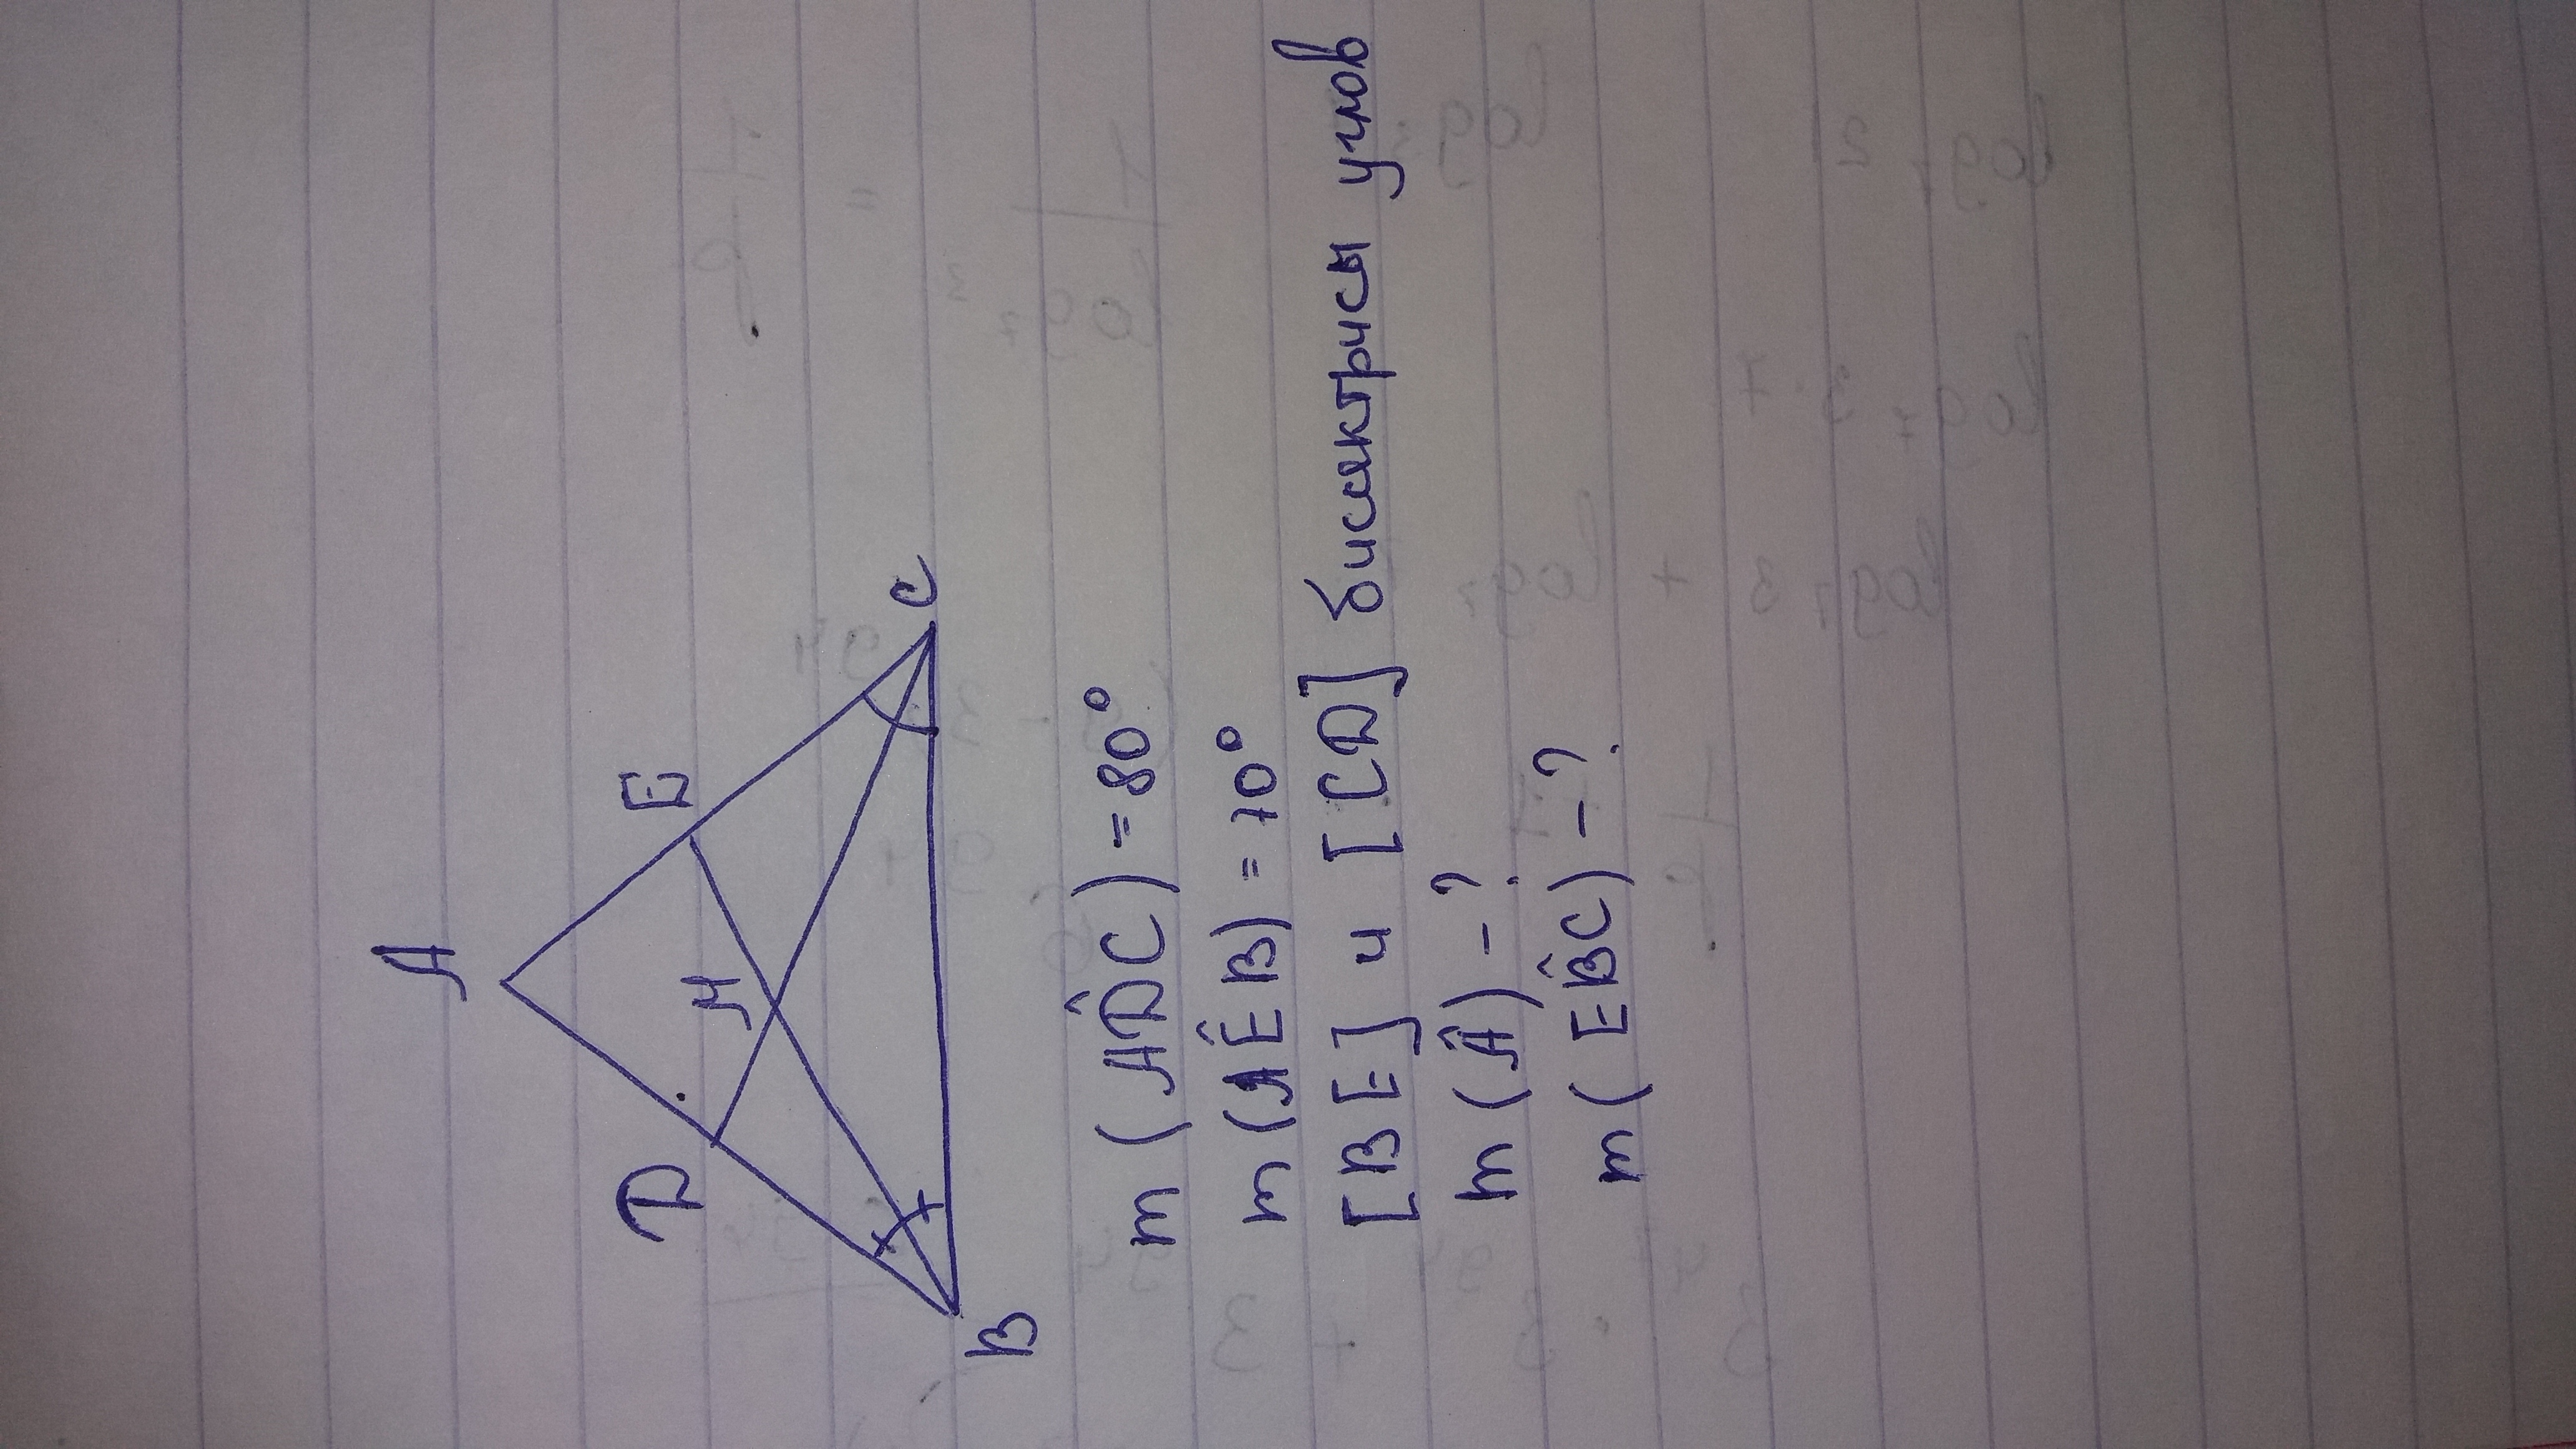 A
D
E
M
B
C
m(AD̂C)=80°
m(AÊB)=70°
[BE] и [CD] биссектрисы углов
m(Â)-?
m(EB̂C)-?